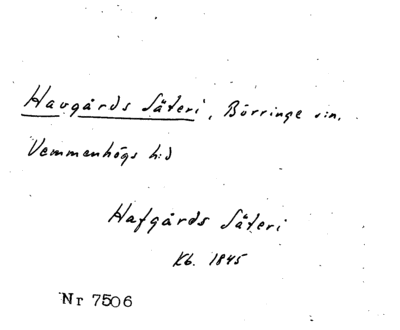 Havgårds Säteri, Börringe sn.
Vemmenhögs hd
Hafgårds Säteri
Kb. 1845
Nr 7506